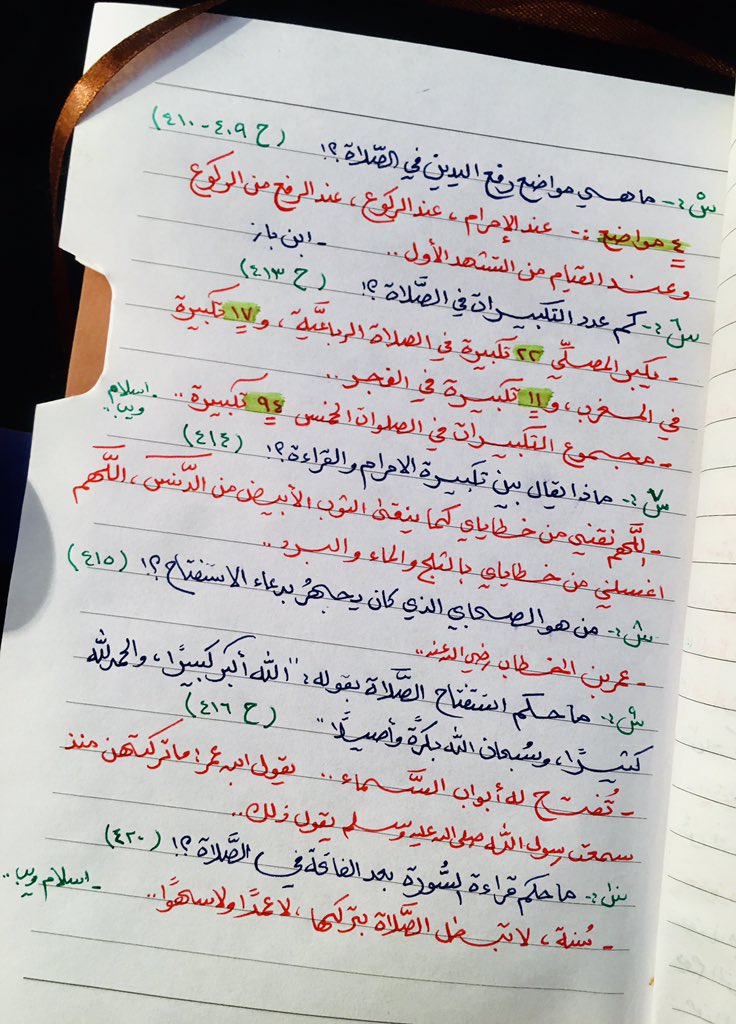 س٥:- ما هي مواضع رفع اليدين في الصَّلاة؟! (ح ٤٠٩-٤١٠)
٤ مواضع :- عند الإحرام، عند الركوع، عند الرفع من الركوع
وعند القيام من التشهد الأول.. - ابن باز
س٦:- كم عدد التكبيرات في الصَّلاة؟! (ح ٤١٣)
- يكبر المصلِّي ٢٢ تكبيرة في الصلاة الرباعيَّة، و ١٧ تكبيرة
في المغرب، و ١١ تكبيرة في الفجر..
- مجموع التكبيرات في الصلوات الخمس ٩٤ تكبيرة.. - اسلام ويب..
س٧:- ماذا يقال بين تكبيرة الاحرام والقراءة؟! (٤١٤)
- اللَّهم نقني من خطاياي كما ينقى الثوب الأبيض من الدَّنس، اللَّهم
اغسلني من خطاياي بالثلج والماء والبرد..
س٨:- من هو الصحابي الذي كان يجهرُ بدعاء الاستفتاح؟! (٤١٥)
- عمر بن الخطاب رضي الله عنه..
س٩:- ما حكم استفتاح الصَّلاة بقوله: "الله أكبر كبيرًا، والحمد لله
كثيرًا، وسُبحان الله بكرةً وأصيلًا" (ح ٤١٦)
- تُفتح له أبواب السَّماء.. يقول ابن عمر: ما تركتهن منذ
سمعت رسول الله صلى الله عليه وسلم يقول ذلك..
س١٠:- ما حكم قراءة السُّورة بعد الفاتحة في الصَّلاة؟! (٤٢٠)
- سُنة، لا تبطل الصَّلاة بتركها، لا عمدًا ولا سهوًا.. - اسلام ويب..